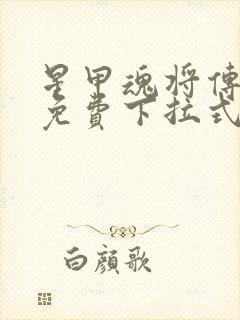 星甲魂将傳
免費下拉式
白顔歌